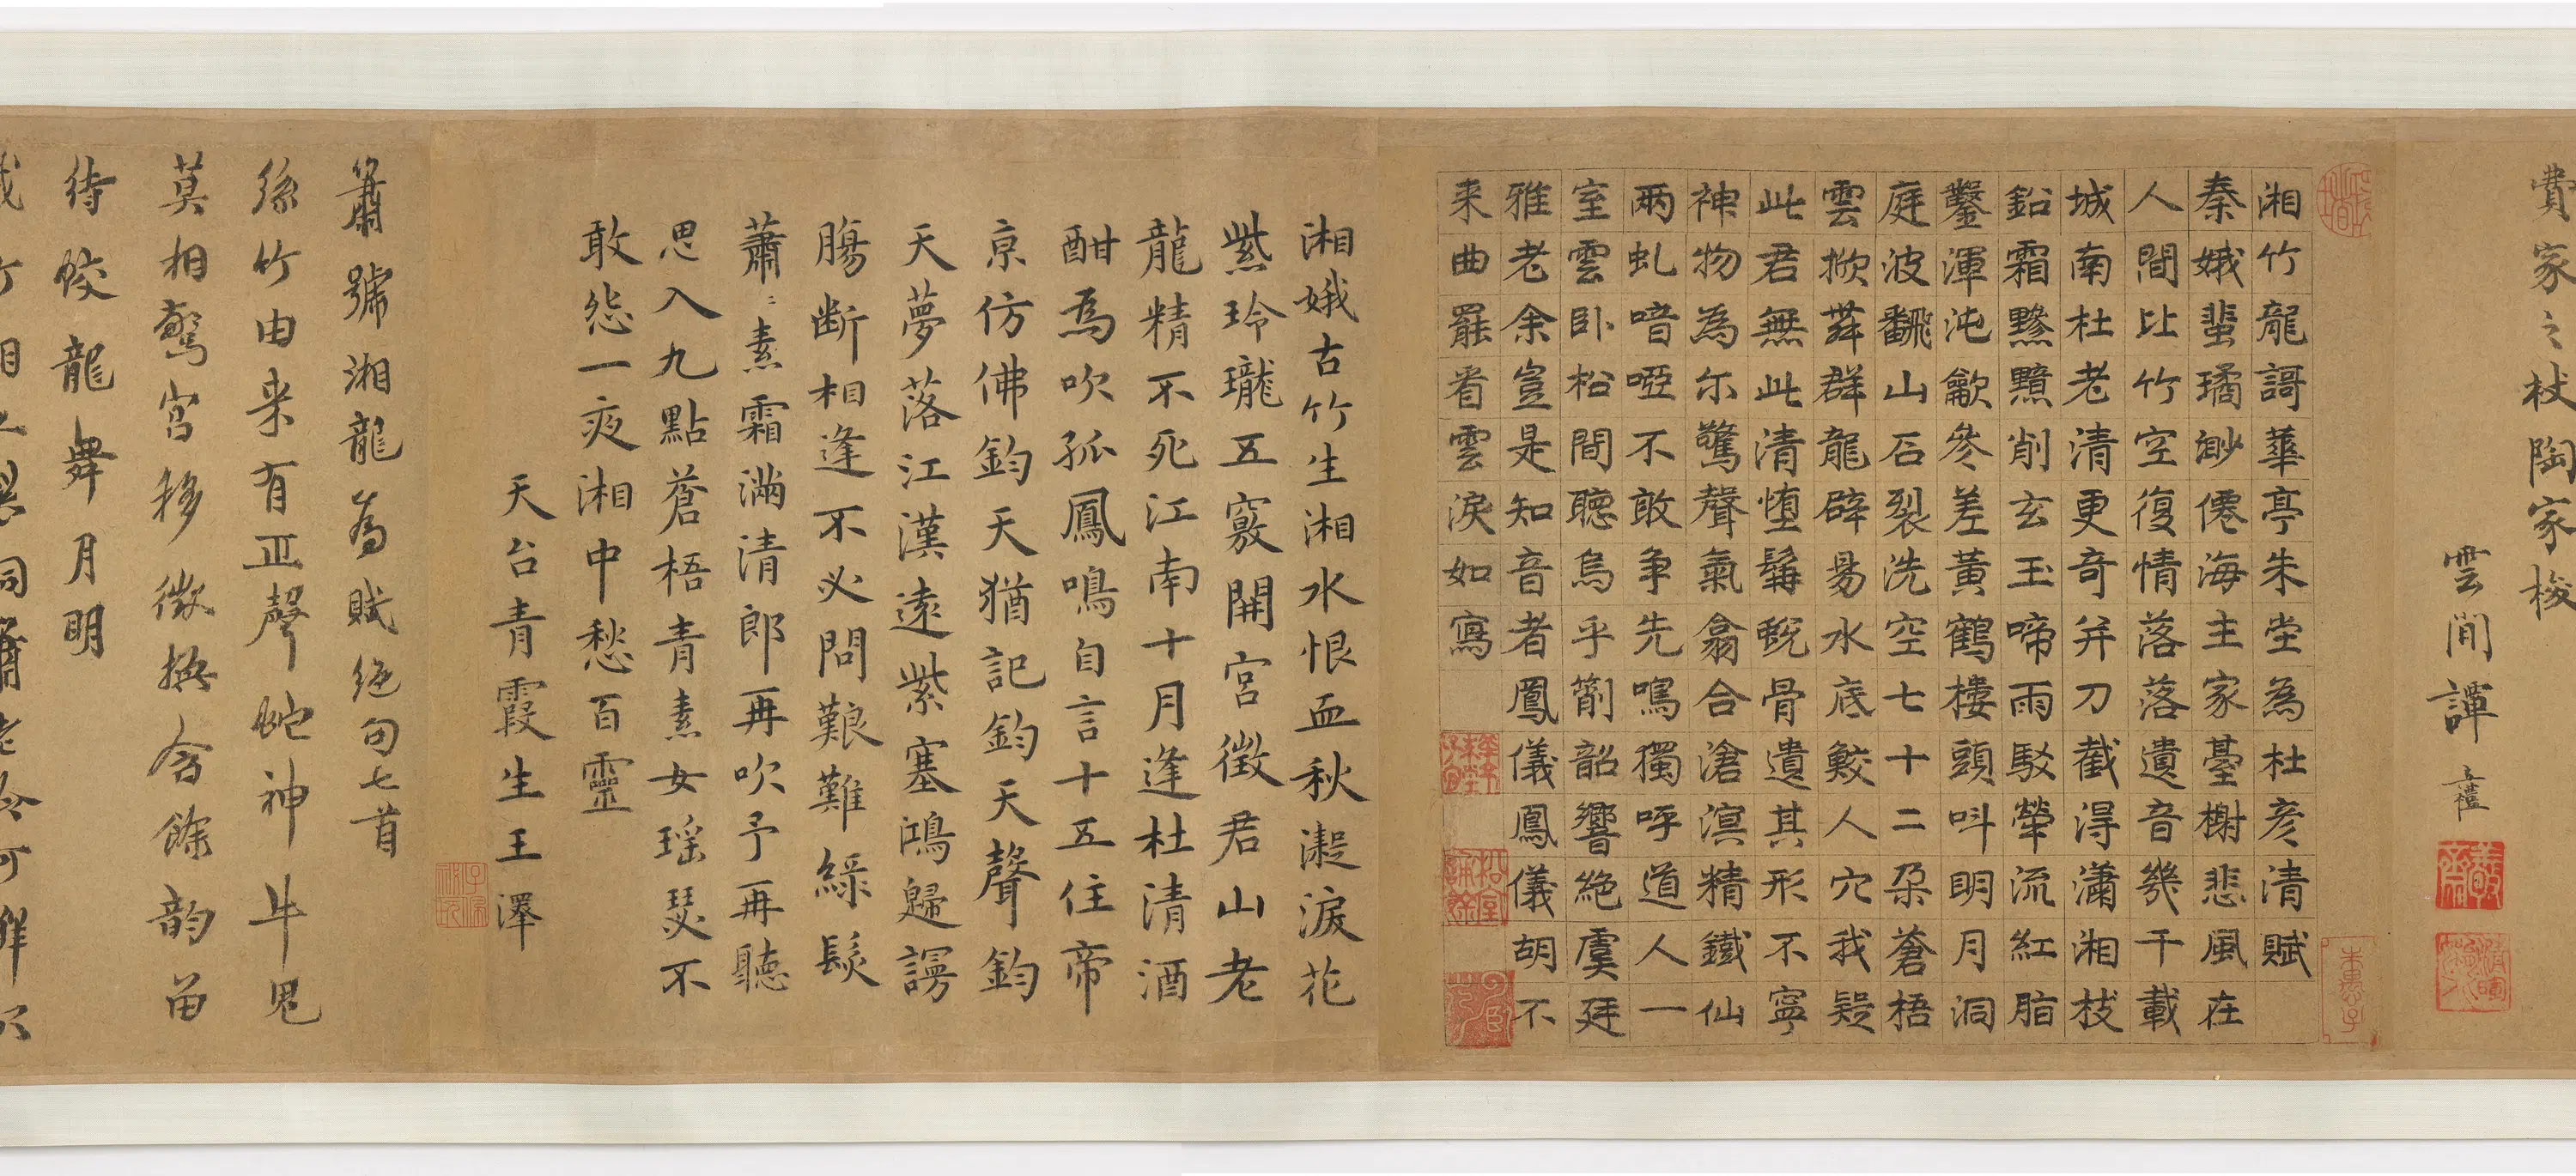 費家之杖陶家梭
雲間譚章
湘竹龍謌華亭朱堂為杜彥清賦
秦娥蜚璚邈僊海主家臺榭悲風在
人間比竹空復情落落遺音幾千載
城南杜老清更奇并刀截得瀟湘枝
鉛霜黲黮削玄玉啼雨駁犖流紅脂
鑿渾沌歙參差黃鶴樓頭叫明月洞
庭波飜山石裂洗空七十二朶蒼梧
雲掀舞群龍辟易水底鮫人穴我疑
此君無此清墮髯蛻骨遺其形不寧
神物為尓驚聲氣翕合滄溟精鐵仙
兩虬喑啞不敢爭先鳴獨呼道人一
室雲卧松間聽烏乎箾韶響絶虞廷
雅老余豈是知音者鳳儀鳳儀胡不
来曲罷看雲淚如寫
湘娥古竹生湘水恨血秋凝淚花
紫玲瓏五竅開宮徵君山老
龍精不死江南十月逢杜清酒
酣為吹孤鳳鳴自言十五住帝
京仿佛鈞天猶記鈞天聲鈞
天夢落江漢遠紫塞鴻歸謾
腸斷相逢不必問艱難綠髮
蕭〻素霜滿清郎再吹予再聽
思入九點蒼梧青素女瑶瑟不
敢怨一夜湘中愁百靈
天台青霞生王澤
簫號湘龍為賦絶句七首
絲竹由来有正聲蛇神牛鬼
莫相驚宮移徵換含餘韵留
待蛟龍舞月明